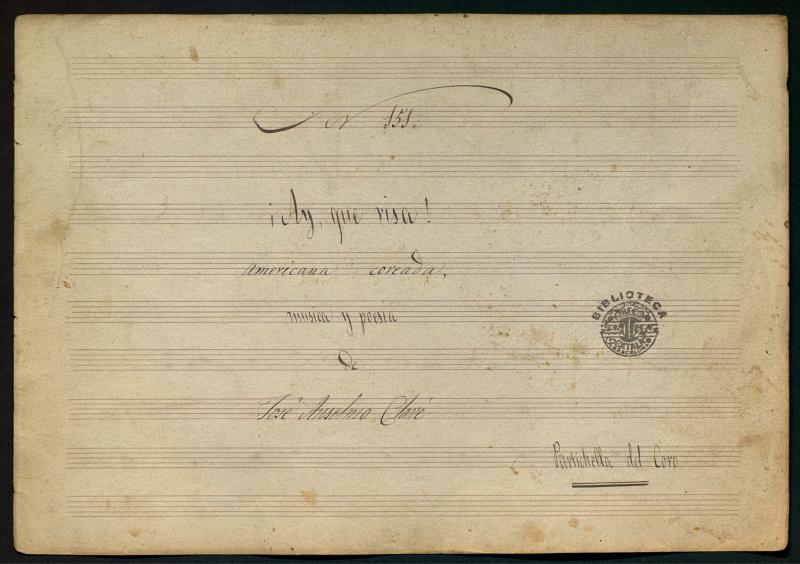 Nº 151.
¡Ay, que risa!
Americana coreada,
musica y poesia
de
José Anselmo Clavé
BIBLIOTECA
Partichella del Coro